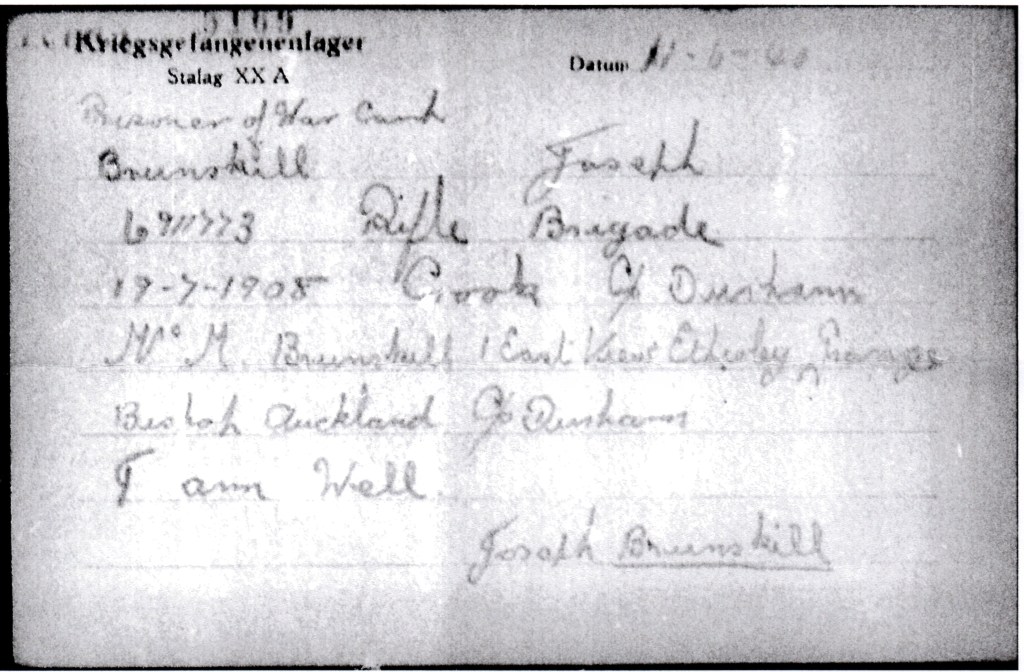 5169
Kriegsgefangenenlager
Stalag XX A
Datum 11-6-40
Prisoner of War Camp
Brunskill Joseph
6911773 Rifle Brigade
19-7-1908 Crook C/o Durham
M. Brunskill 1 East View Etherley Grange
Bishop Auckland C/o Durham
I am Well
Joseph Brunskill